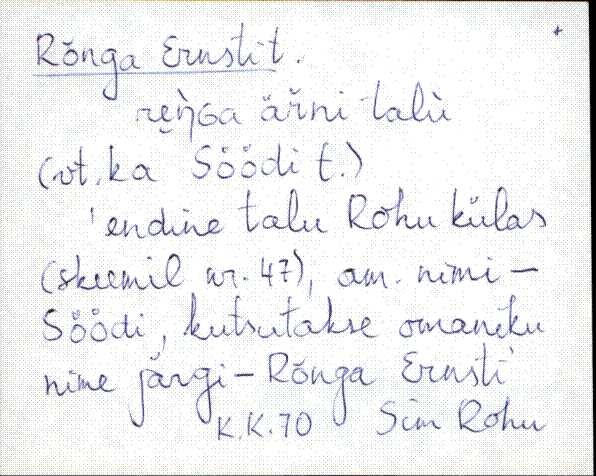 Rõnga Ernsti t.
(vt. ka Söödi t.)
'endine talu Rõhu külas
(skeemil nr. 47), am. nimi –
Söödi, kutsutakse omaniku
nime järgi – Rõnga Ernsti'
K.K. 70 Sim Rohu